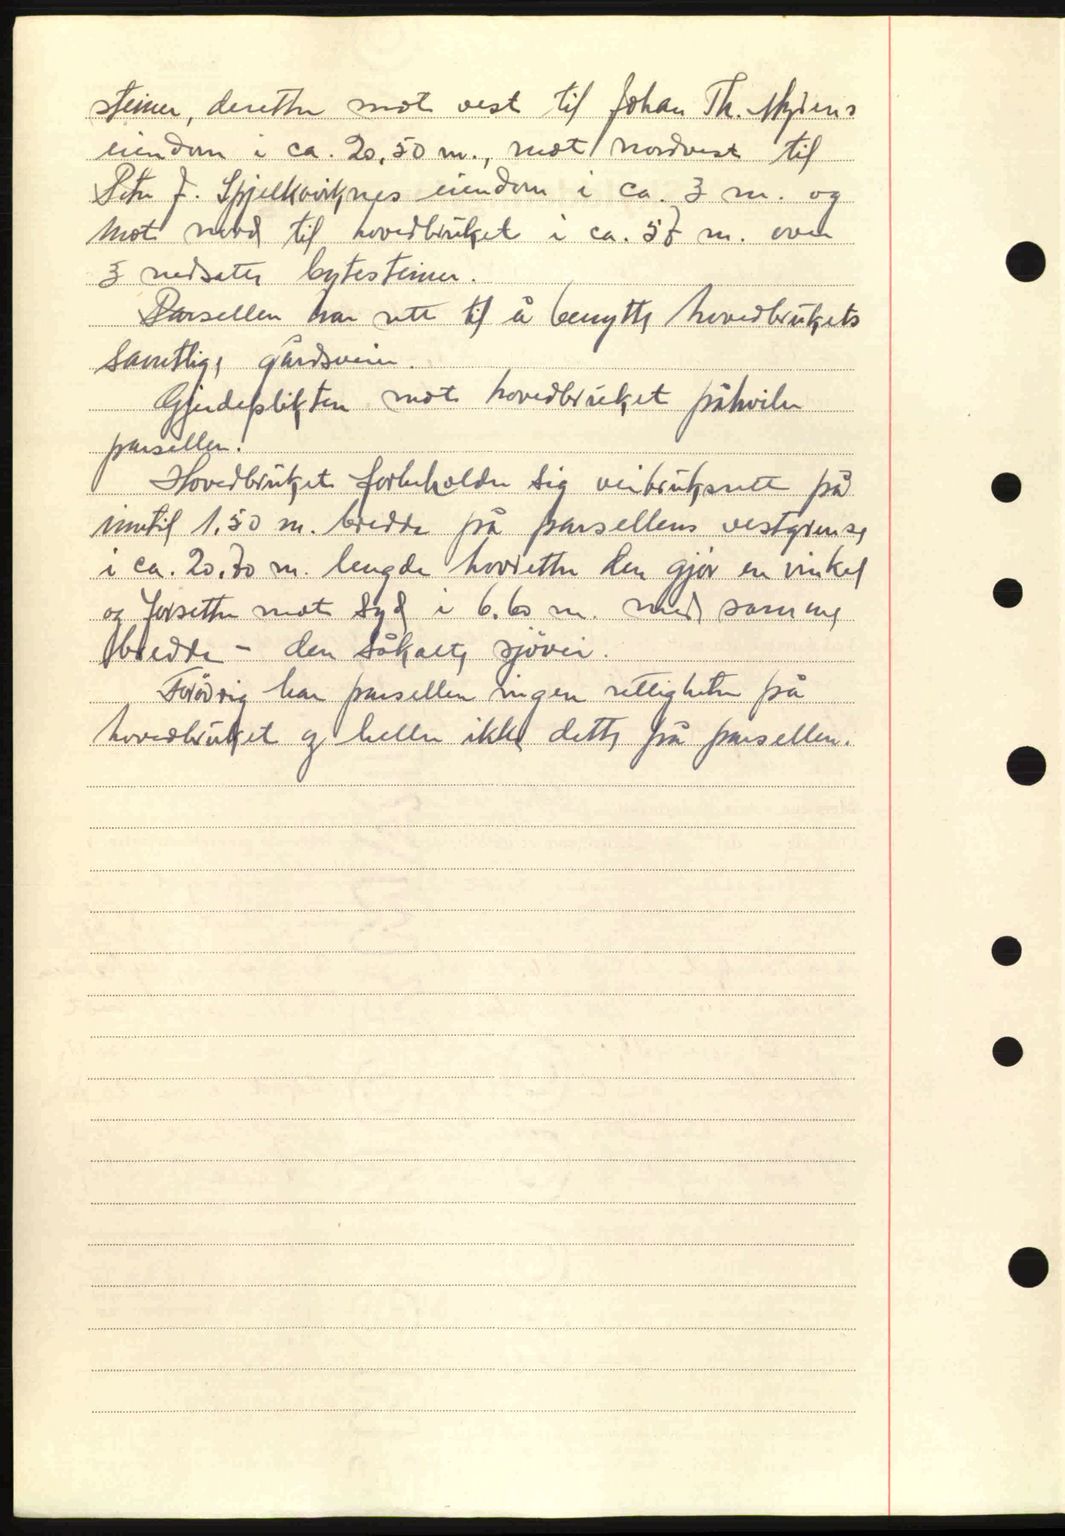 steiner, deretter mot vest til Johan Th. Myrens
eiendom i ca. 20,50 m., mot nordvest til
Petr J. Spjelkaviknes eiendom i ca. 3 m. og
mot nord til hovedbruket i ca. 57 m. over
3 nedsatte bytesteiner.
Parsellen har rett til å benytte hovedbrukets
samtlige gårdsveier.
Gjerdeplikten mot hovedbruket påhviler
parsellen.
Hovedbruket forbeholder sig veibruksrett på
inntil 1,50 m. bredde på parsellens vestgrense
i ca. 20,70 m. lengde hvoretter den gjør en vinkel
og forsetter mot syd i 6.60 m. med samme
bredde - den såkalte sjövei.
Forövrig har parsellen ingen rettigheter på
hovedbruket og heller ikke dette på parsellen.